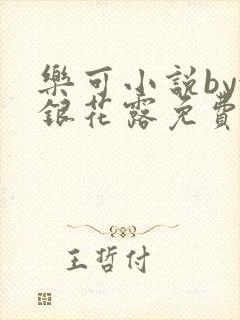 樂可小説by
銀花露免費
王哲付